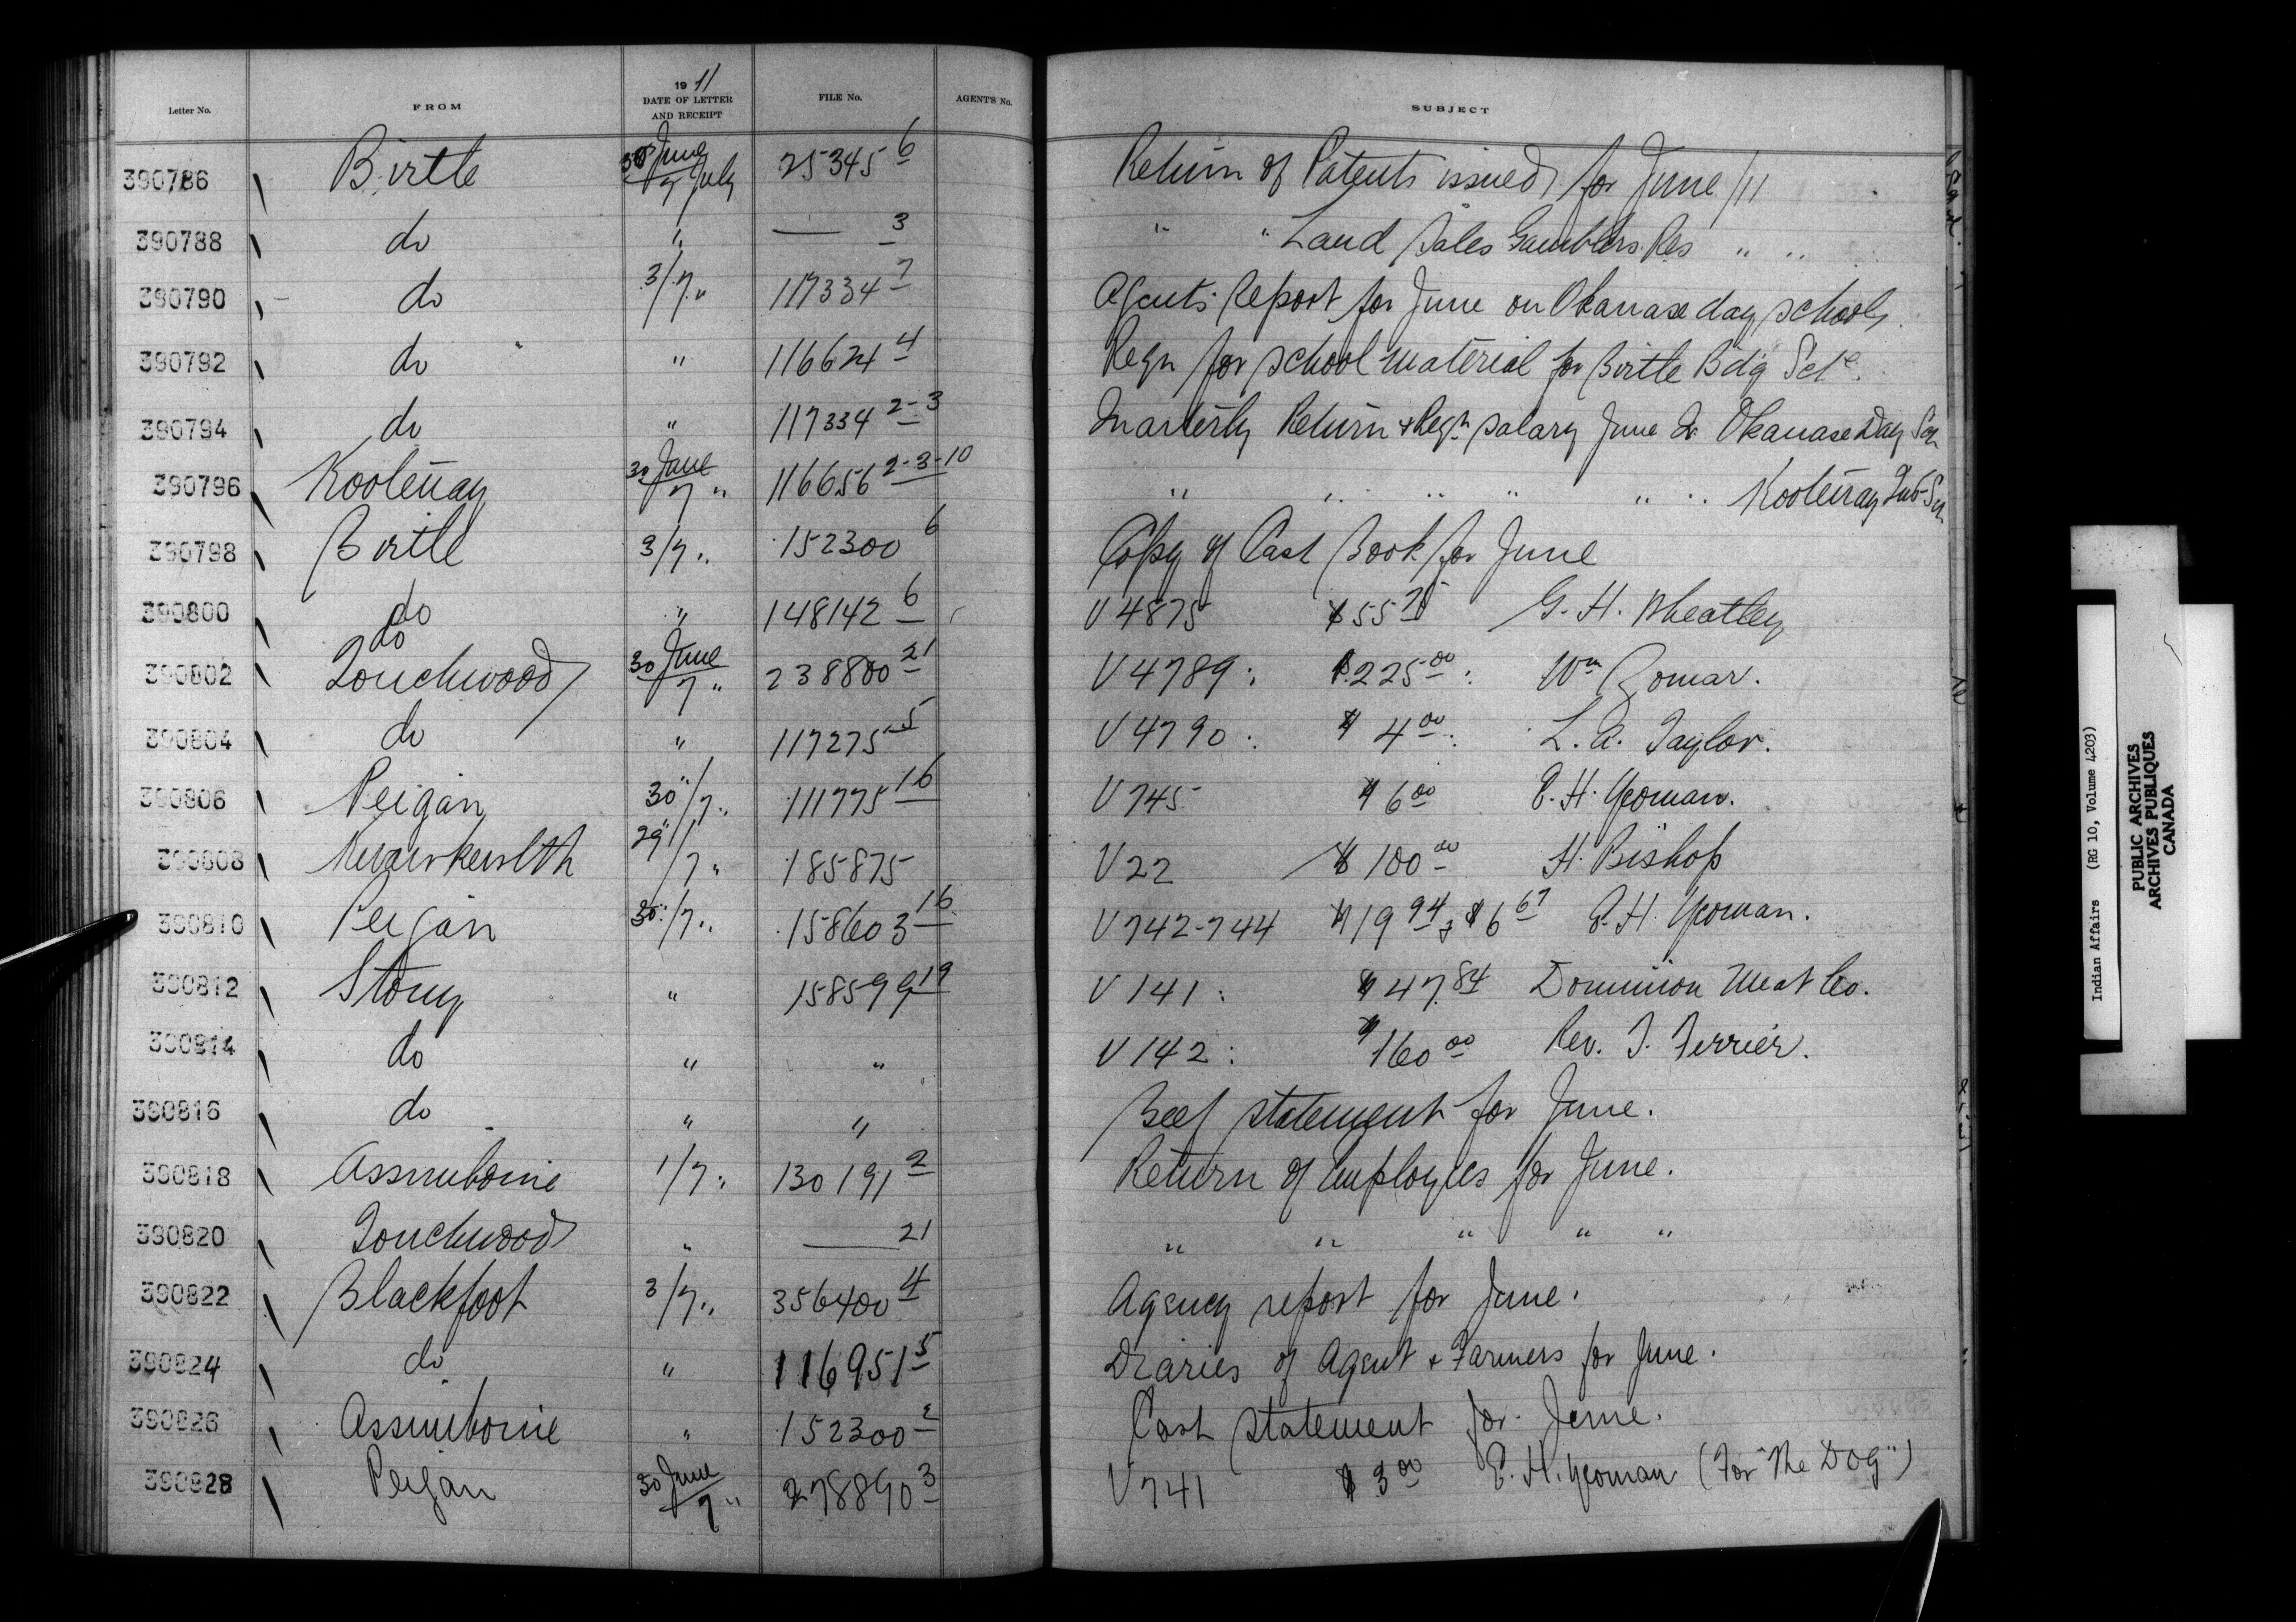 19 11
Letter No. FROM DATE OF LETTER AND RECEIPT FILE No. AGENT'S No. SUBJECT
390786 Birtle 30 June / 7 July 25345 6 Return of Patents issued for June /11
390788 do " — 3 " " Land Sales Gamblers Res " "
390790 do 3/7 " 117334 7 Agents Report for June on Okanase day school
390792 do " 116624 4 Reqn for school material for Birtle Bdg Sch.
390794 do " 117334 2-3 Quarterly Return & Reqn salary June Qr Okanase Day Sch
390796 Kootenay 30 June / 7 " 116656 2-3-10 " " " " " " Kootenay Ind Sch
390798 Birtle 3/7 " 152300 6 Copy of Cash Book for June
390800 do " 148142 6 V 4875 $55 25 G. H. Wheatley
do
390802 Touchwood 30 June / 7 " 238800 21 V 4789 : $225 00 : Wm Gomar.
390804 do " 117275 5 V 4790 : $4 00 : L. A. Taylor.
390806 Peigan 30 " /7 " 111775 16 V 745 $6 00 E. H. Yeoman.
390808 Kwawkewlth 29 " /7 " 185875 V 22 $100 00 H. Bishop
390810 Peigan 30 " /7 " 158603 16 V 742-744 $19 94 & $6 67 E. H. Yeoman.
390812 Stony " 158599 19 V 141 : $47.84 Dominion Meat Co.
390814 do " " V 142 : $160 00 Rev. T. Ferrier.
390816 do " " Beef statement for June.
390818 Assiniboine 1/7 " 130191 2 Return of Employees for June.
390820 Touchwood " — 21 " " " " "
390822 Blackfoot 3/7 " 356400 4 Agency report for June.
390824 do " 116951 5 Diaries of Agent & Farmers for June.
390826 Assiniboine " 152300 2 Cash statement for June.
390828 Peigan 30 June / 7 " 278890 3 V 741 $3 00 E. H. Yeoman (For "The Dog")
Indian Affairs (RG 10, Volume 4203)
PUBLIC ARCHIVES
ARCHIVES PUBLIQUES
CANADA